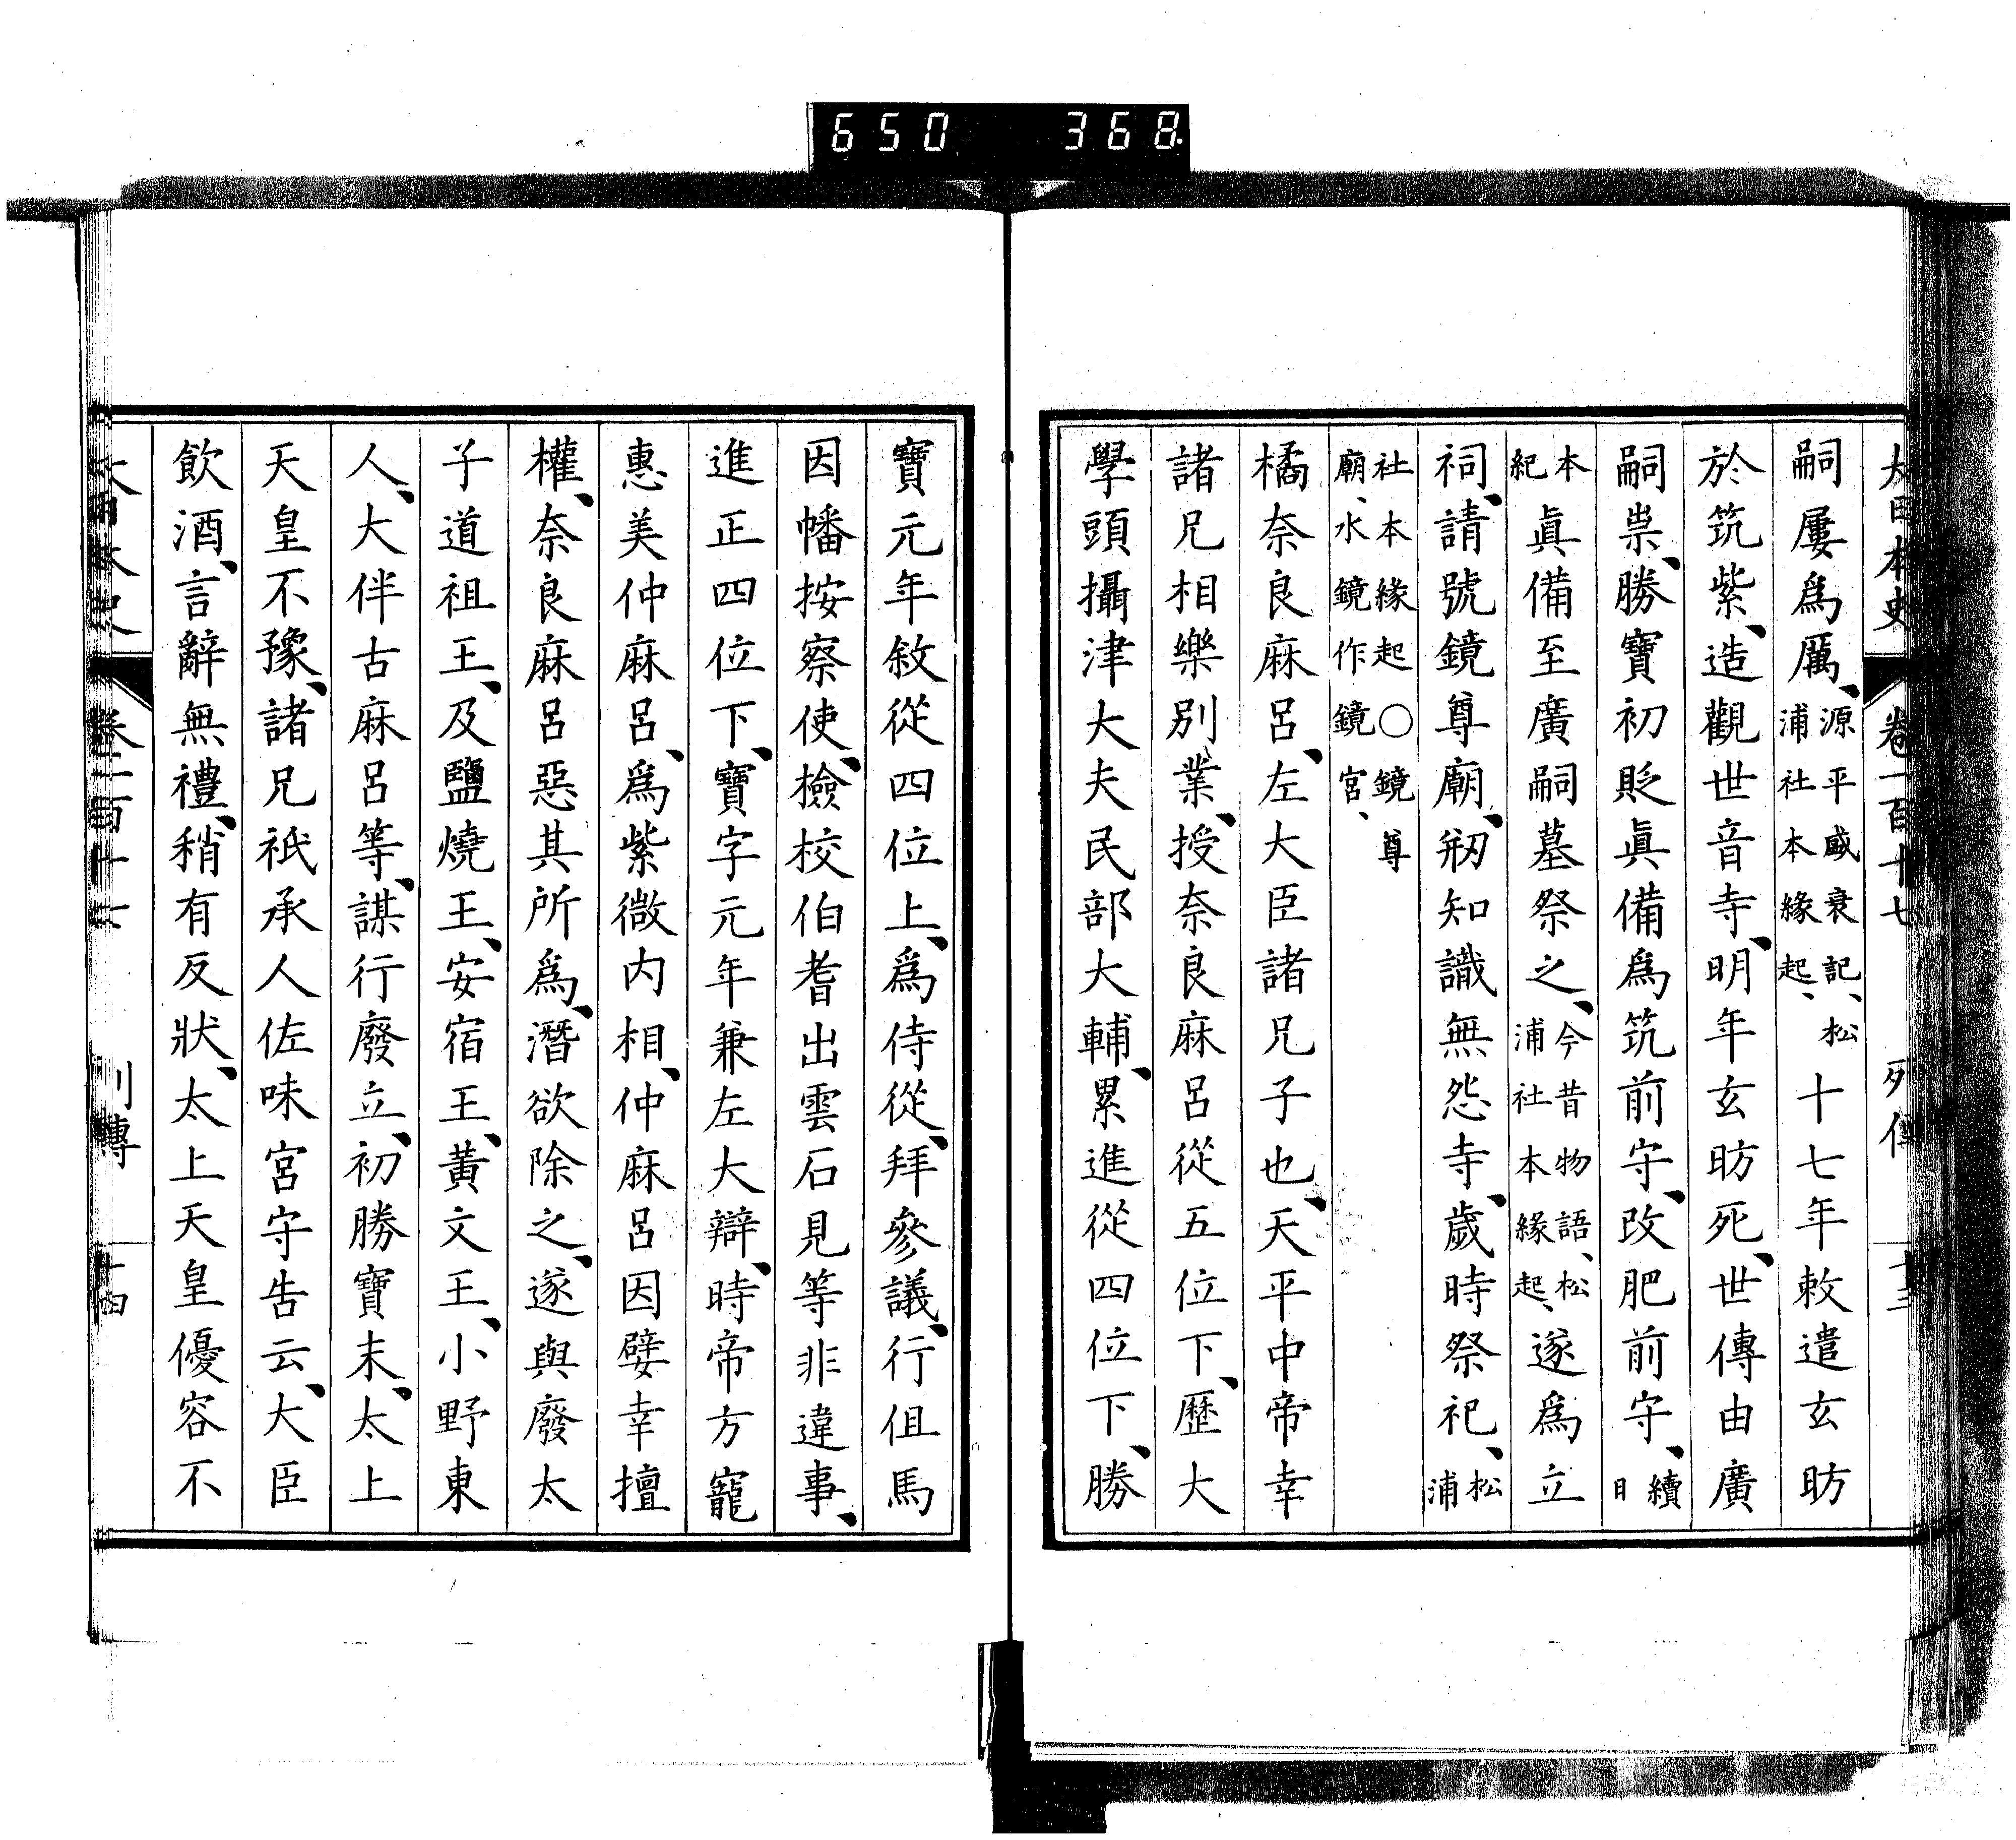 650 368
大日本史 卷一百十七 列傳 十三
嗣屢爲厲、源平盛衰記、松浦社本緣起、十七年敕遣玄昉
於筑紫、造觀世音寺、明年玄昉死、世傳由廣
嗣祟、勝寶初貶眞備爲筑前守、改肥前守、續日
本紀眞備至廣嗣墓祭之、今昔物語、松浦社本緣起、遂爲立
祠、請號鏡尊廟、剏知識無怨寺、歲時祭祀、松浦
社本緣起○鏡尊廟、水鏡作鏡宮、
橘奈良麻呂、左大臣諸兄子也、天平中帝幸
諸兄相樂別業、授奈良麻呂從五位下、歷大
學頭攝津大夫民部大輔、累進從四位下、勝
寶元年敘從四位上、爲侍從、拜參議、行但馬
因幡按察使、檢校伯耆出雲石見等非違事、
進正四位下、寶字元年兼左大辯、時帝方寵
惠美仲麻呂、爲紫微內相、仲麻呂因嬖幸擅
權、奈良麻呂惡其所爲、潛欲除之、遂與廢太
子道祖王、及鹽燒王、安宿王、黃文王、小野東
人、大伴古麻呂等、謀行廢立、初勝寶末、太上
天皇不豫、諸兄祇承人佐味宮守告云、大臣
飲酒、言辭無禮、稍有反狀、太上天皇優容不
大日本史 卷一百十七 列傳 十四